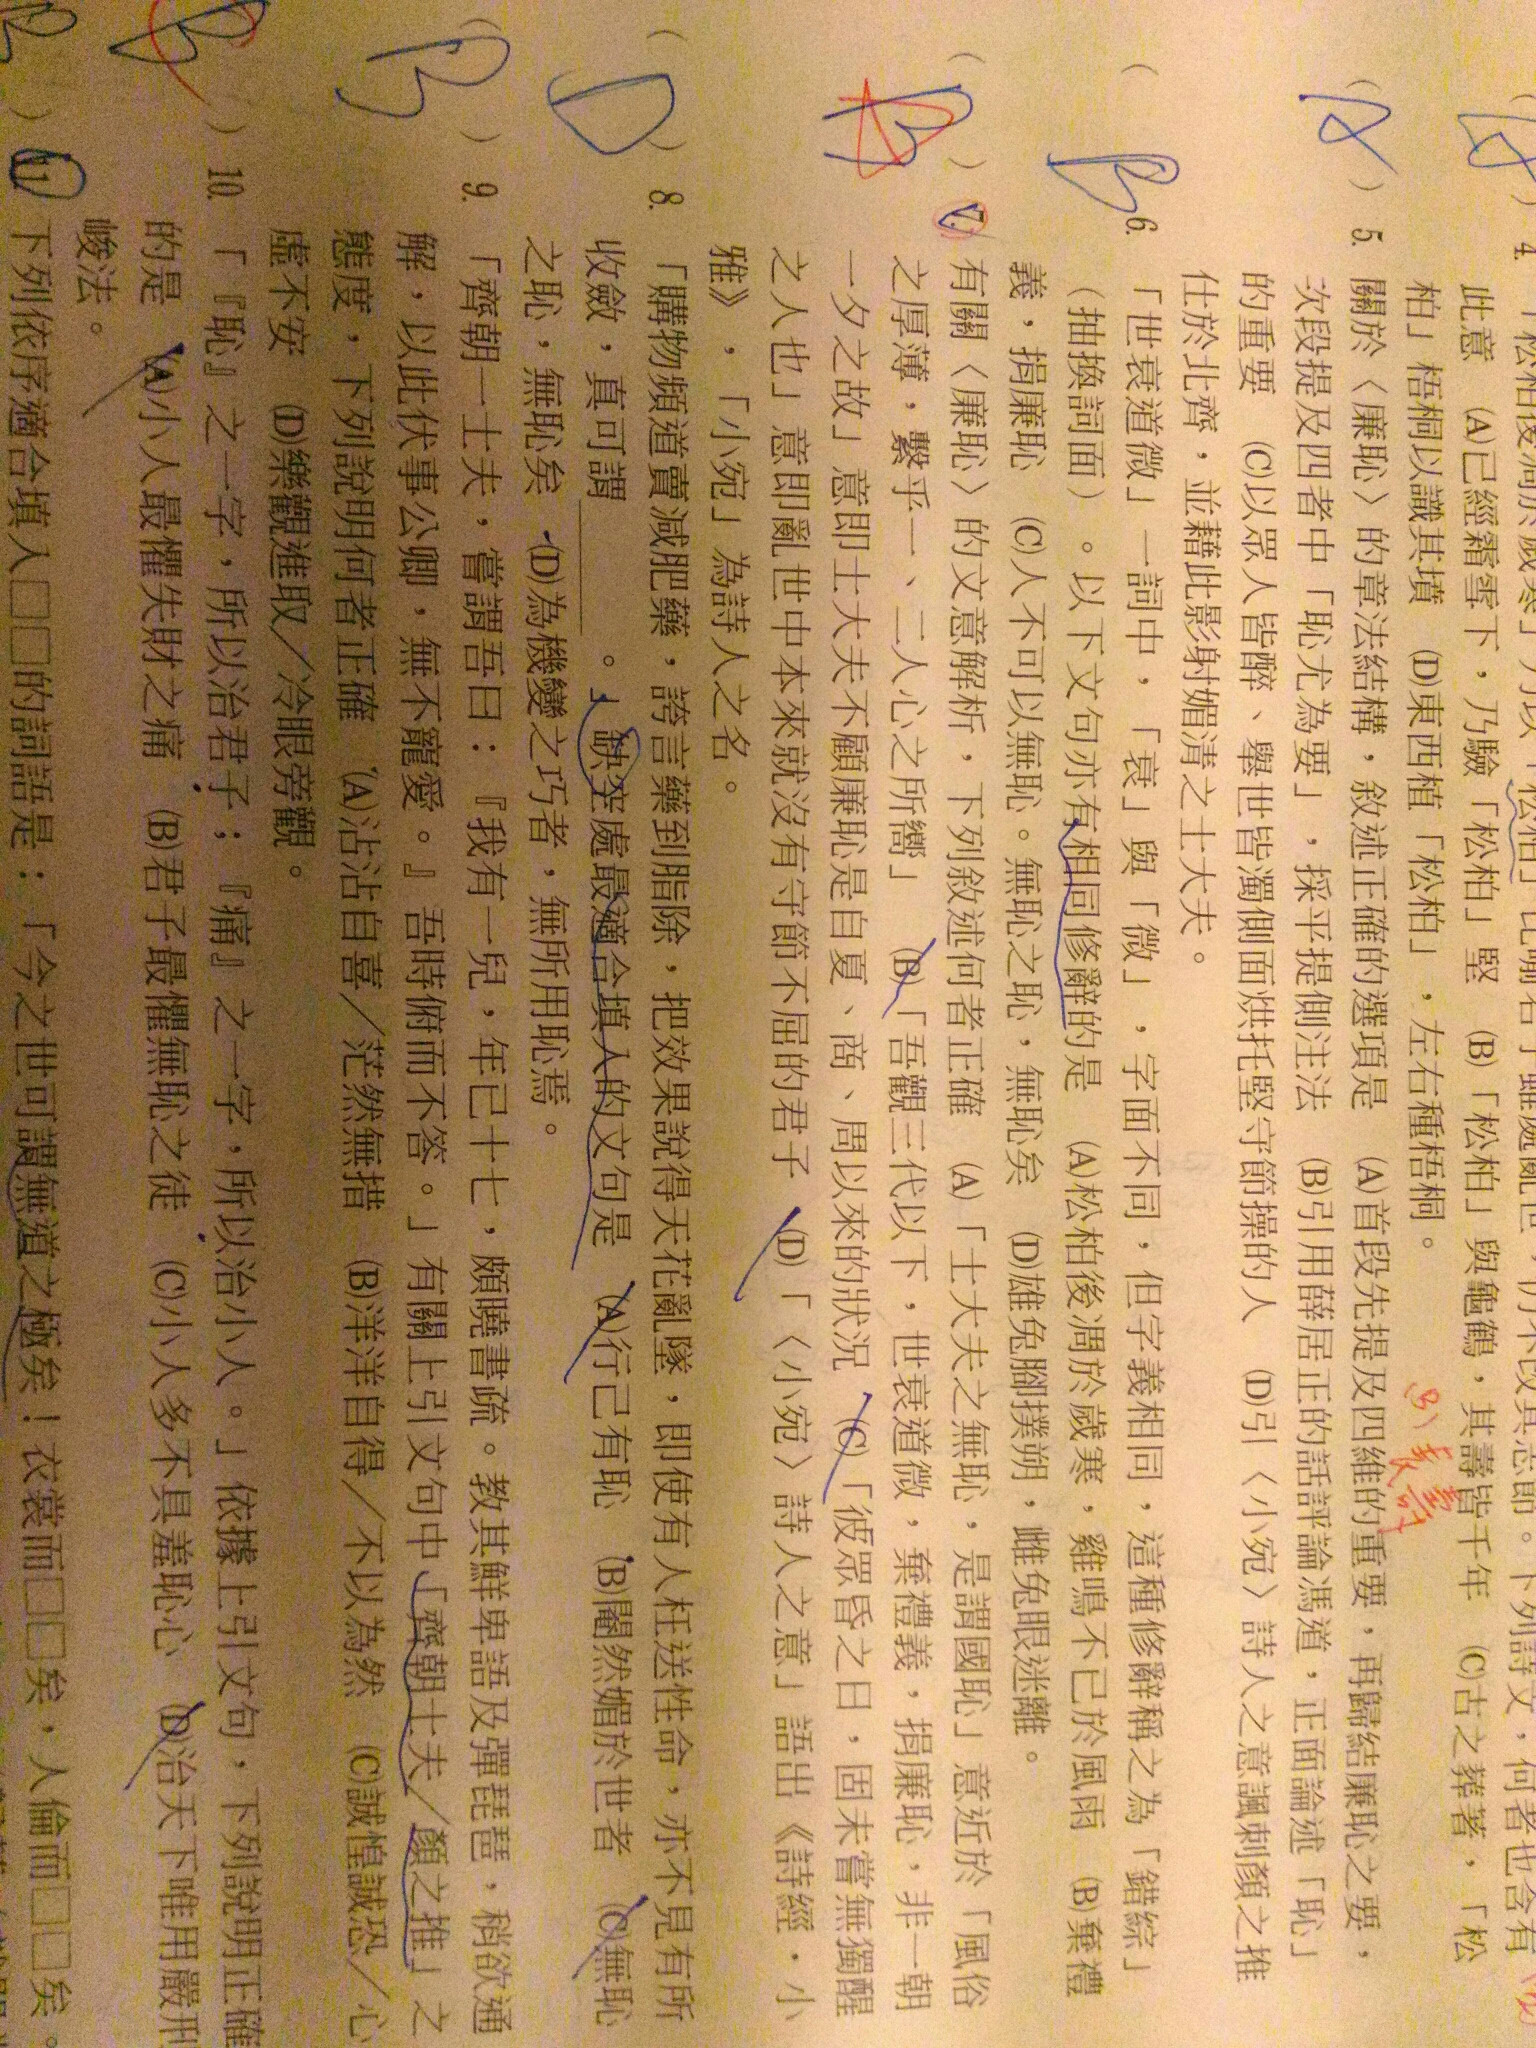 柏」梧桐以識其墳　(D)東西植「松柏」，左右種梧桐。
此意　(A)已經霜雪下，乃驗「松柏」堅　(B)「松柏」與龜鶴，其壽皆千年　(C)古之葬著，「松
B)長壽
A
( ) 5. 關於〈廉恥〉的章法結構，敘述正確的選項是　(A)首段先提及四維的重要，再歸結廉恥之要，
次段提及四者中「恥尤為要」，採平提側注法　(B)引用薛居正的話評論馮道，正面論述「恥」
的重要　(C)以眾人皆醉、舉世皆濁側面烘托堅守節操的人　(D)引〈小宛〉詩人之意諷刺顏之推
仕於北齊，並藉此影射媚清之士大夫。
B
( ) 6. 「世衰道微」一詞中，「衰」與「微」，字面不同，但字義相同，這種修辭稱之為「錯綜」
（抽換詞面）。以下文句亦有相同修辭的是　(A)松柏後凋於歲寒，雞鳴不已於風雨　(B)棄禮
義，捐廉恥　(C)人不可以無恥。無恥之恥，無恥矣　(D)雄兔腳撲朔，雌兔眼迷離。
B A
( ) 7. 有關〈廉恥〉的文意解析，下列敘述何者正確　(A)「士大夫之無恥，是謂國恥」意近於「風俗
之厚薄，繫乎一、二人心之所嚮」　(B)「吾觀三代以下，世衰道微，棄禮義，捐廉恥，非一朝
一夕之故」意即士大夫不顧廉恥是自夏、商、周以來的狀況　(C)「彼眾昏之日，固未嘗無獨醒
之人也」意即亂世中本來就沒有守節不屈的君子　(D)「〈小宛〉詩人之意」語出《詩經．小
雅》，「小宛」為詩人之名。
D
( ) 8. 「購物頻道賣減肥藥，誇言藥到脂除，把效果說得天花亂墜，即使有人枉送性命，亦不見有所
收斂，真可謂＿＿＿＿。」缺空處最適合填入的文句是　(A)行己有恥　(B)閹然媚於世者　(C)無恥
之恥，無恥矣　(D)為機變之巧者，無所用恥焉。
B
( ) 9. 「齊朝一士夫，嘗謂吾曰：『我有一兒，年已十七，頗曉書疏。教其鮮卑語及彈琵琶，稍欲通
解，以此伏事公卿，無不寵愛。』吾時俯而不答。」有關上引文句中「齊朝士夫／顏之推」之
態度，下列說明何者正確　(A)沾沾自喜／茫然無措　(B)洋洋自得／不以為然　(C)誠惶誠恐／心
虛不安　(D)樂觀進取／冷眼旁觀。
B
( ) 10. 「『恥』之一字，所以治君子；『痛』之一字，所以治小人。」依據上引文句，下列說明正確
的是　(A)小人最懼失財之痛　(B)君子最懼無恥之徒　(C)小人多不具羞恥心　(D)治天下唯用嚴刑
峻法。
B
) 11. 下列依序適合填入□□的詞語是：「今之世可謂無道之極矣！衣裳而□□矣，人倫而□□矣。